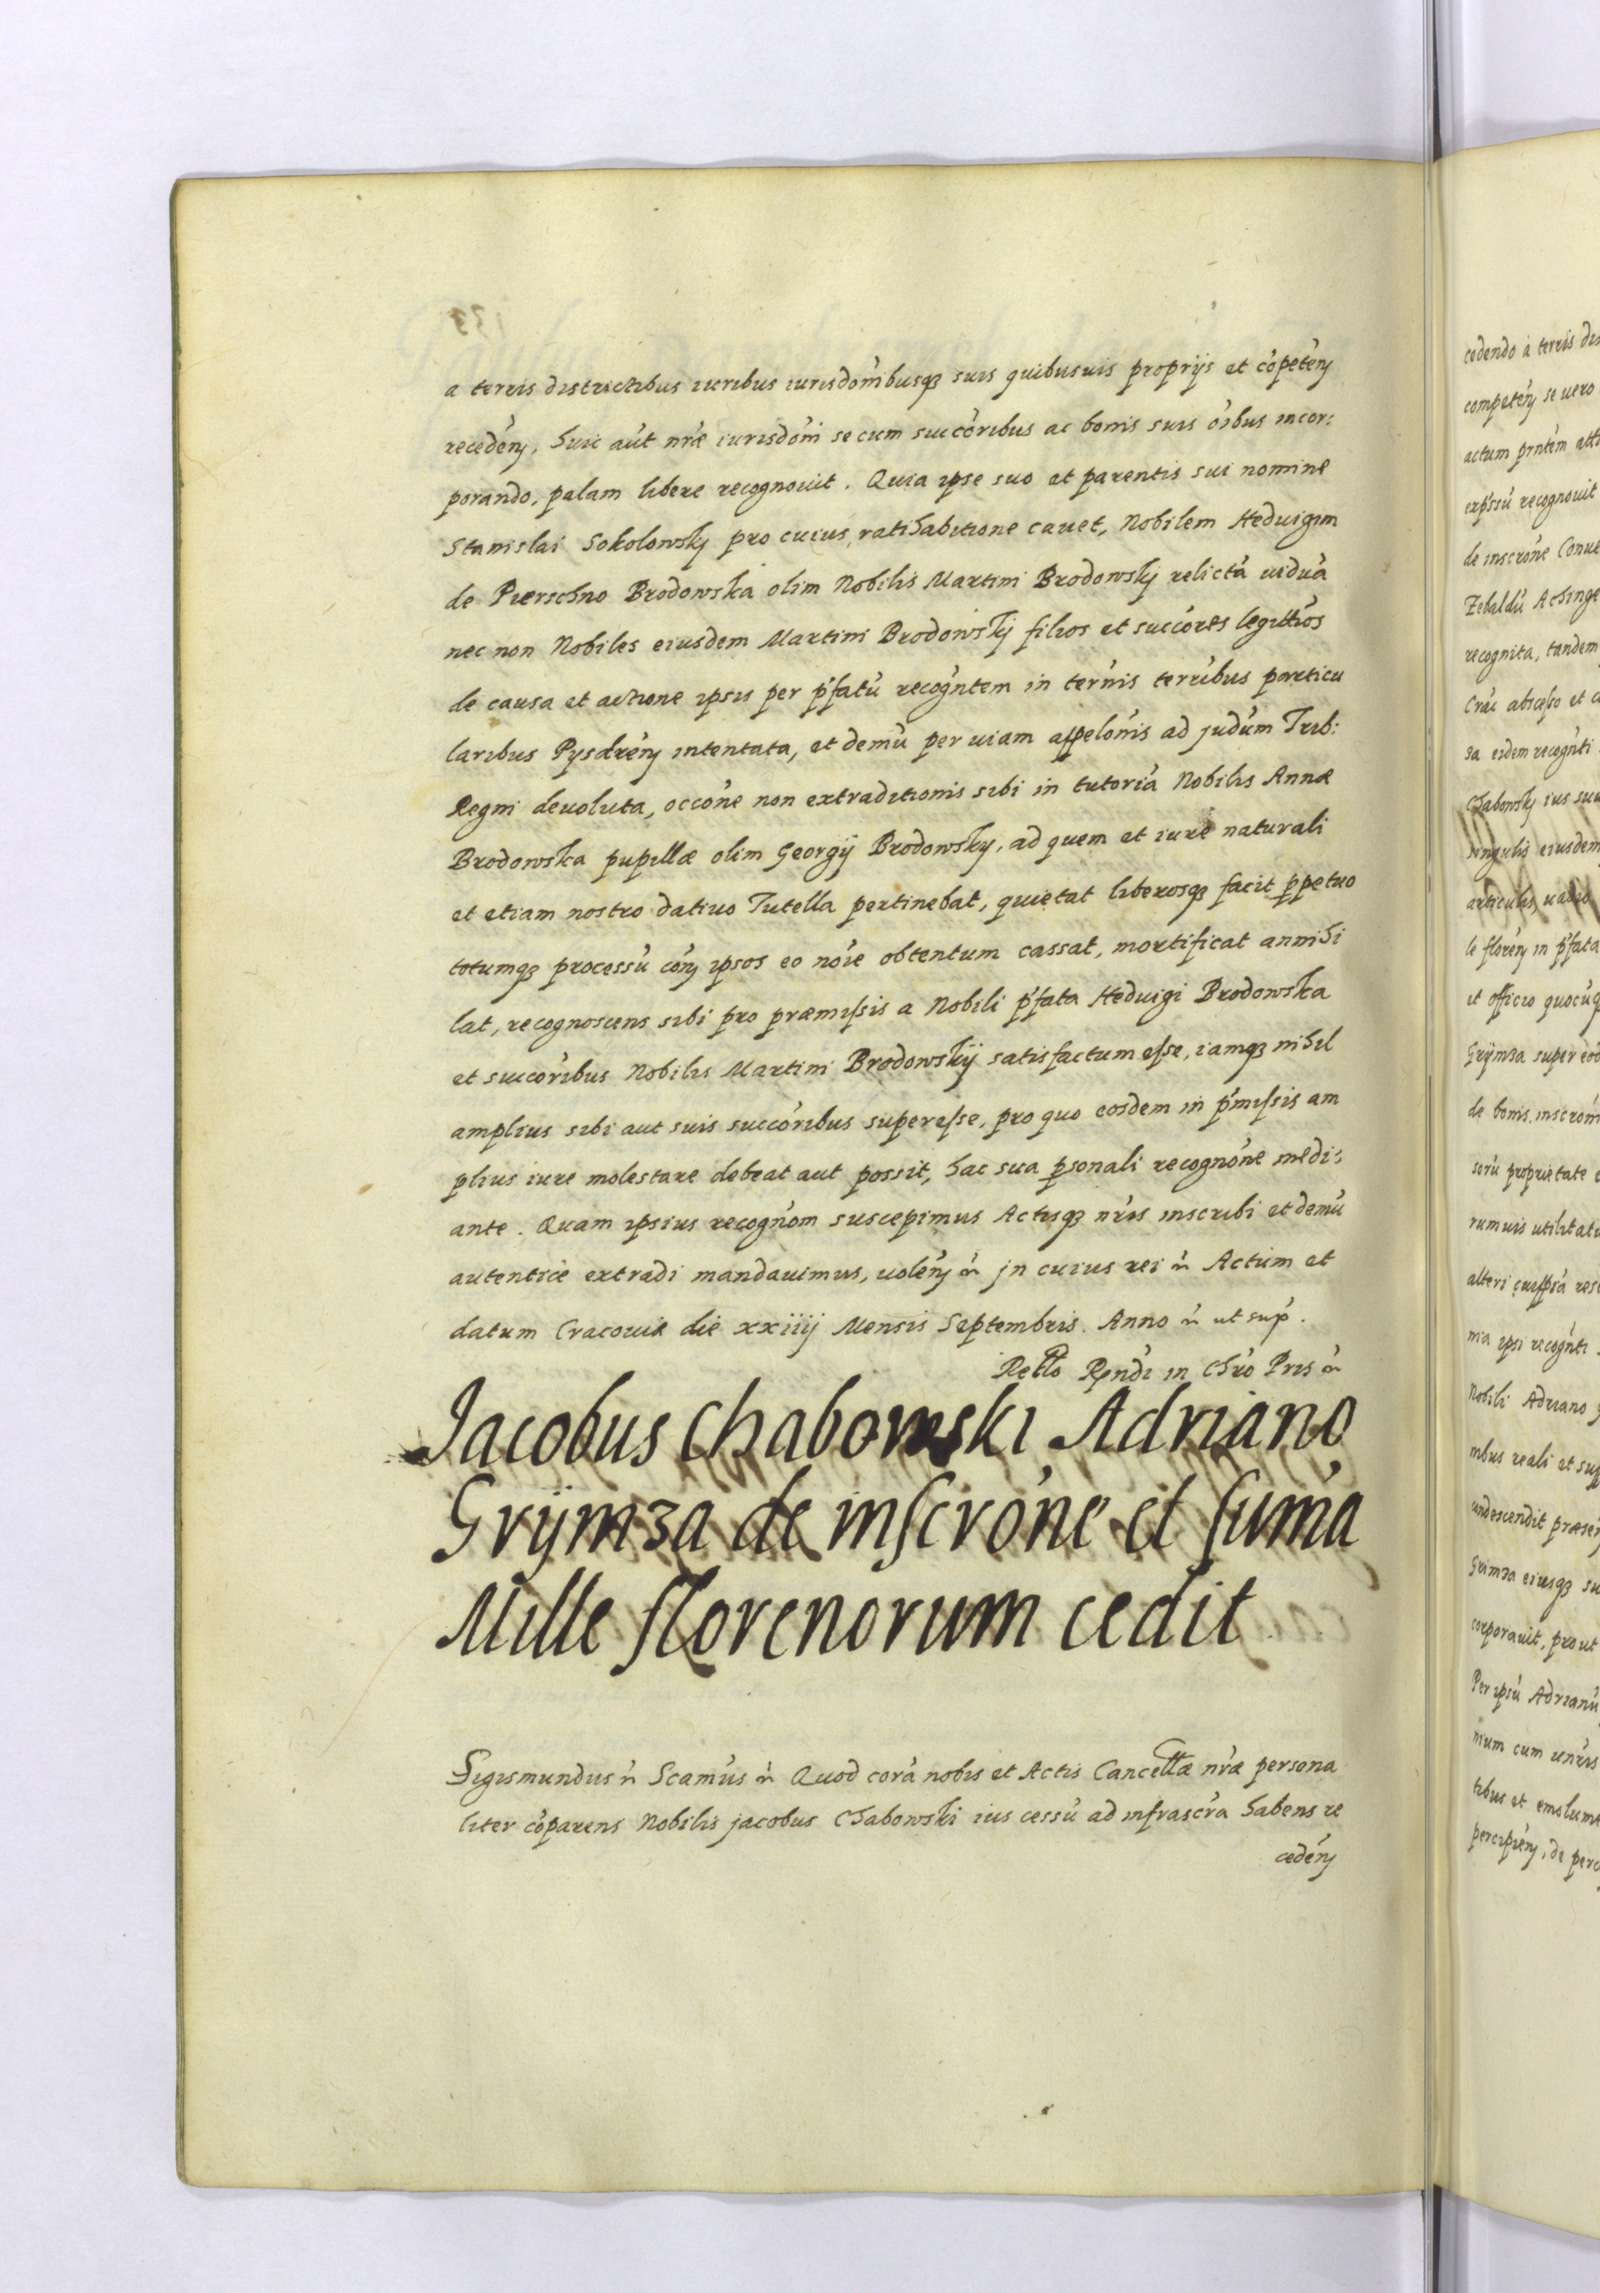 a terris districtibus iuribus iurisdom̃ibusqꝫ suis quibusuis proprijs et cõpeteñ
recedeñ, huic aũt nr̃æ iurisdom̃ se cum succõribus ac bonis suis oĩbus incor:
porando, palam libere recognouit. Quia ipse suo et parentis sui nomine
Stanislai Sokolowskÿ pro cuius ratihabitione cauet, Nobilem Heduigim
de Pierschno Brodowska olim Nobilis Martini Brodowskÿ relictã uiduã
nec non Nobiles eiusdem Martini Brodowskÿ filios et succõres legitt̃os
de causa et actione ipsis per p̃fatũ recogñtem in terñis terribus particu
laribus Pysdreñ intentata, et demũ per uiam appelõnis ad judũm Trib:
Regni deuoluta, occõne non extraditionis sibi in tutoriã Nobilis Annæ
Brodowska pupillæ olim Georgÿ Brodowsky, ad quem et iure naturali
et etiam nostro datiuo Tutella pertinebat, quietat liberosqꝫ facit ꝑpetuo
totumqꝫ processũ coñ ipsos eo noĩe obtentum cassat, mortificat annihi
lat, recognoscens sibi pro præmissis a Nobili p̃fata Heduigi Brodowska
et succõribus Nobilis Martini Brodowskÿ satisfactum esse, iamqꝫ nihil
amplius sibi aut suis succõribus superesse, pro quo eosdem in p̃missis am
plius iure molestare debeat aut possit, hac sua ꝑsonali recognõne medi:
ante. Quam ipsius recogñom suscepimus Actisqꝫ nr̃is inscribi et demũ
autentice extradi mandauimus, uoleñ &c̃ jn cuius rei &c̃ Actum et
datum Cracouiæ die xxiiij Mensis Septembris. Anno &c̃ ut sup̃.
Rell̃o Rẽndi in Chr̃o Pris &c̃
Jacobus Chabowski Adriano
Grÿmza de inscrõne et sum̃a
Mille florenorum cedit
Sigismundus &c̃ Scam̃us &c̃ Quod corã nobis et Actis Cancell̃æ nr̃æ persona
liter cõparens Nobilis jacobus Chabowski ius cessũ ad infrascr̃a habens re
cedeñ
cedendo à terris
competeñ se uero
actum pñtem
exp̃ssũ recognouit
de inscrõne
recognita, tandem
articulis, uadio
de bonis
alteri
Nobili Adriano
corporauit, prout
Per ipsũ Adrianũ